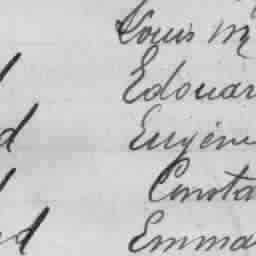 Louis M
Edouar
d Eugène
Consta
d Emma